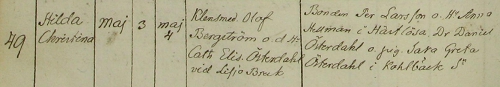 49
Hilda Christina
maj 3
maj 4
Klensmed Olof
Bergström o. d. H:
Cath. Elis. Österdahl
vid Lisjö Bruk
Bonden Per Larsson o. H: Anna
Human i Hästlösa Dr Daniel
Österdahl o. pig. Sara Greta
Österdahl i Kohlbäck Sn